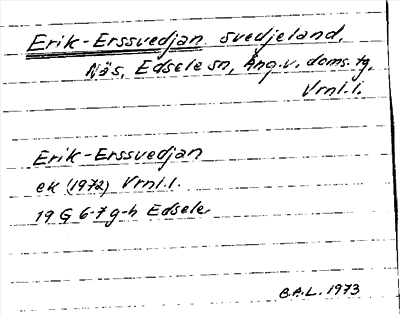 Erik-Erssvedjan, svedjeland,
Näs, Edsele sn, Ång.v. doms.tg,
Vrnl.l.
Erik-Erssvedjan
ek (1972) Vrnl.l.
19 G 6-7 g-h Edsele
B.A.L. 1973